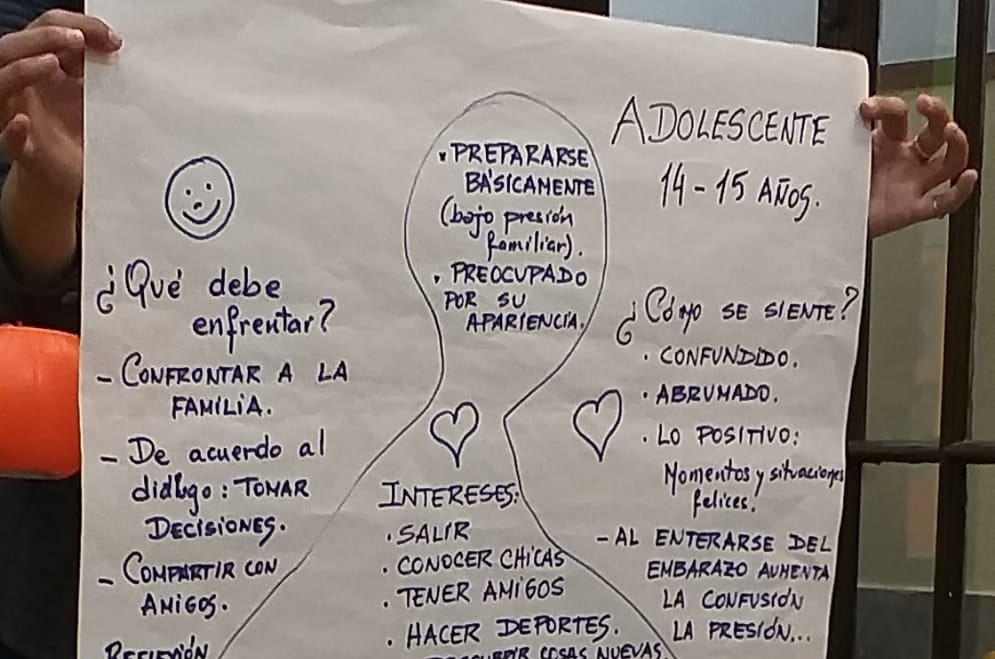 ADOLESCENTE
14-15 AÑOS.
• PREPARARSE
BÁSICAMENTE
(bajo presión
familiar).
• PREOCUPADO
POR SU
APARIENCIA.
¿Qué debe
enfrentar?
- CONFRONTAR A LA
FAMILIA.
- De acuerdo al
diálogo: TOMAR
DECISIONES.
- COMPARTIR CON
AMIGOS.
REFLEXIÓN
INTERESES:
• SALIR
• CONOCER CHICAS
• TENER AMIGOS
• HACER DEPORTES.
COSAS NUEVAS.
¿CÓMO SE SIENTE?
• CONFUNDIDO.
• ABRUMADO.
• LO POSITIVO:
Momentos y situaciones
felices.
- AL ENTERARSE DEL
EMBARAZO AUMENTA
LA CONFUSIÓN
LA PRESIÓN...